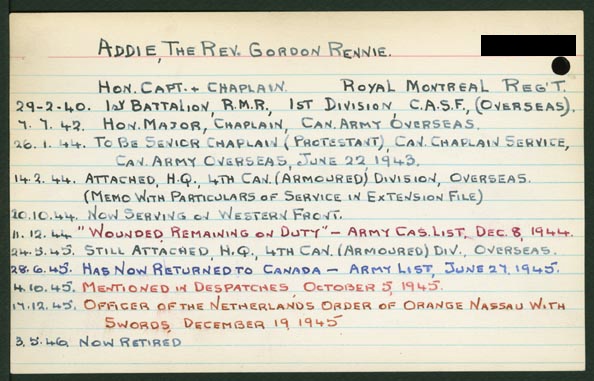 ADDIE, THE REV. GORDON RENNIE.
HON. CAPT. + CHAPLAIN. ROYAL MONTREAL REG'T.
29-2-40. 1ST BATTALION, R.M.R., 1ST DIVISION, C.A.S.F., (OVERSEAS).
7. 7. 42. HON. MAJOR, CHAPLAIN, CAN. ARMY OVERSEAS.
26. 1. 44. TO BE SENIOR CHAPLAIN (PROTESTANT), CAN. CHAPLAIN SERVICE,
CAN. ARMY OVERSEAS, JUNE 22 1943.
14. 2. 44. ATTACHED, H.Q., 4TH CAN. (ARMOURED) DIVISION, OVERSEAS.
(MEMO WITH PARTICULARS OF SERVICE IN EXTENSION FILE)
20.10.44. NOW SERVING ON WESTERN FRONT.
11. 12. 44 "WOUNDED, REMAINING ON DUTY" - ARMY CAS. LIST, DEC. 8, 1944.
24. 5. 45. STILL ATTACHED, H.Q., 4TH CAN. (ARMOURED) DIV., OVERSEAS.
28. 6. 45. HAS NOW RETURNED TO CANADA - ARMY LIST, JUNE 27, 1945.
4. 10. 45. MENTIONED IN DESPATCHES, OCTOBER 5, 1945.
17. 12. 45. OFFICER OF THE NETHERLANDS ORDER OF ORANGE NASSAU WITH
SWORDS, DECEMBER 19, 1945
3. 5. 46. NOW RETIRED